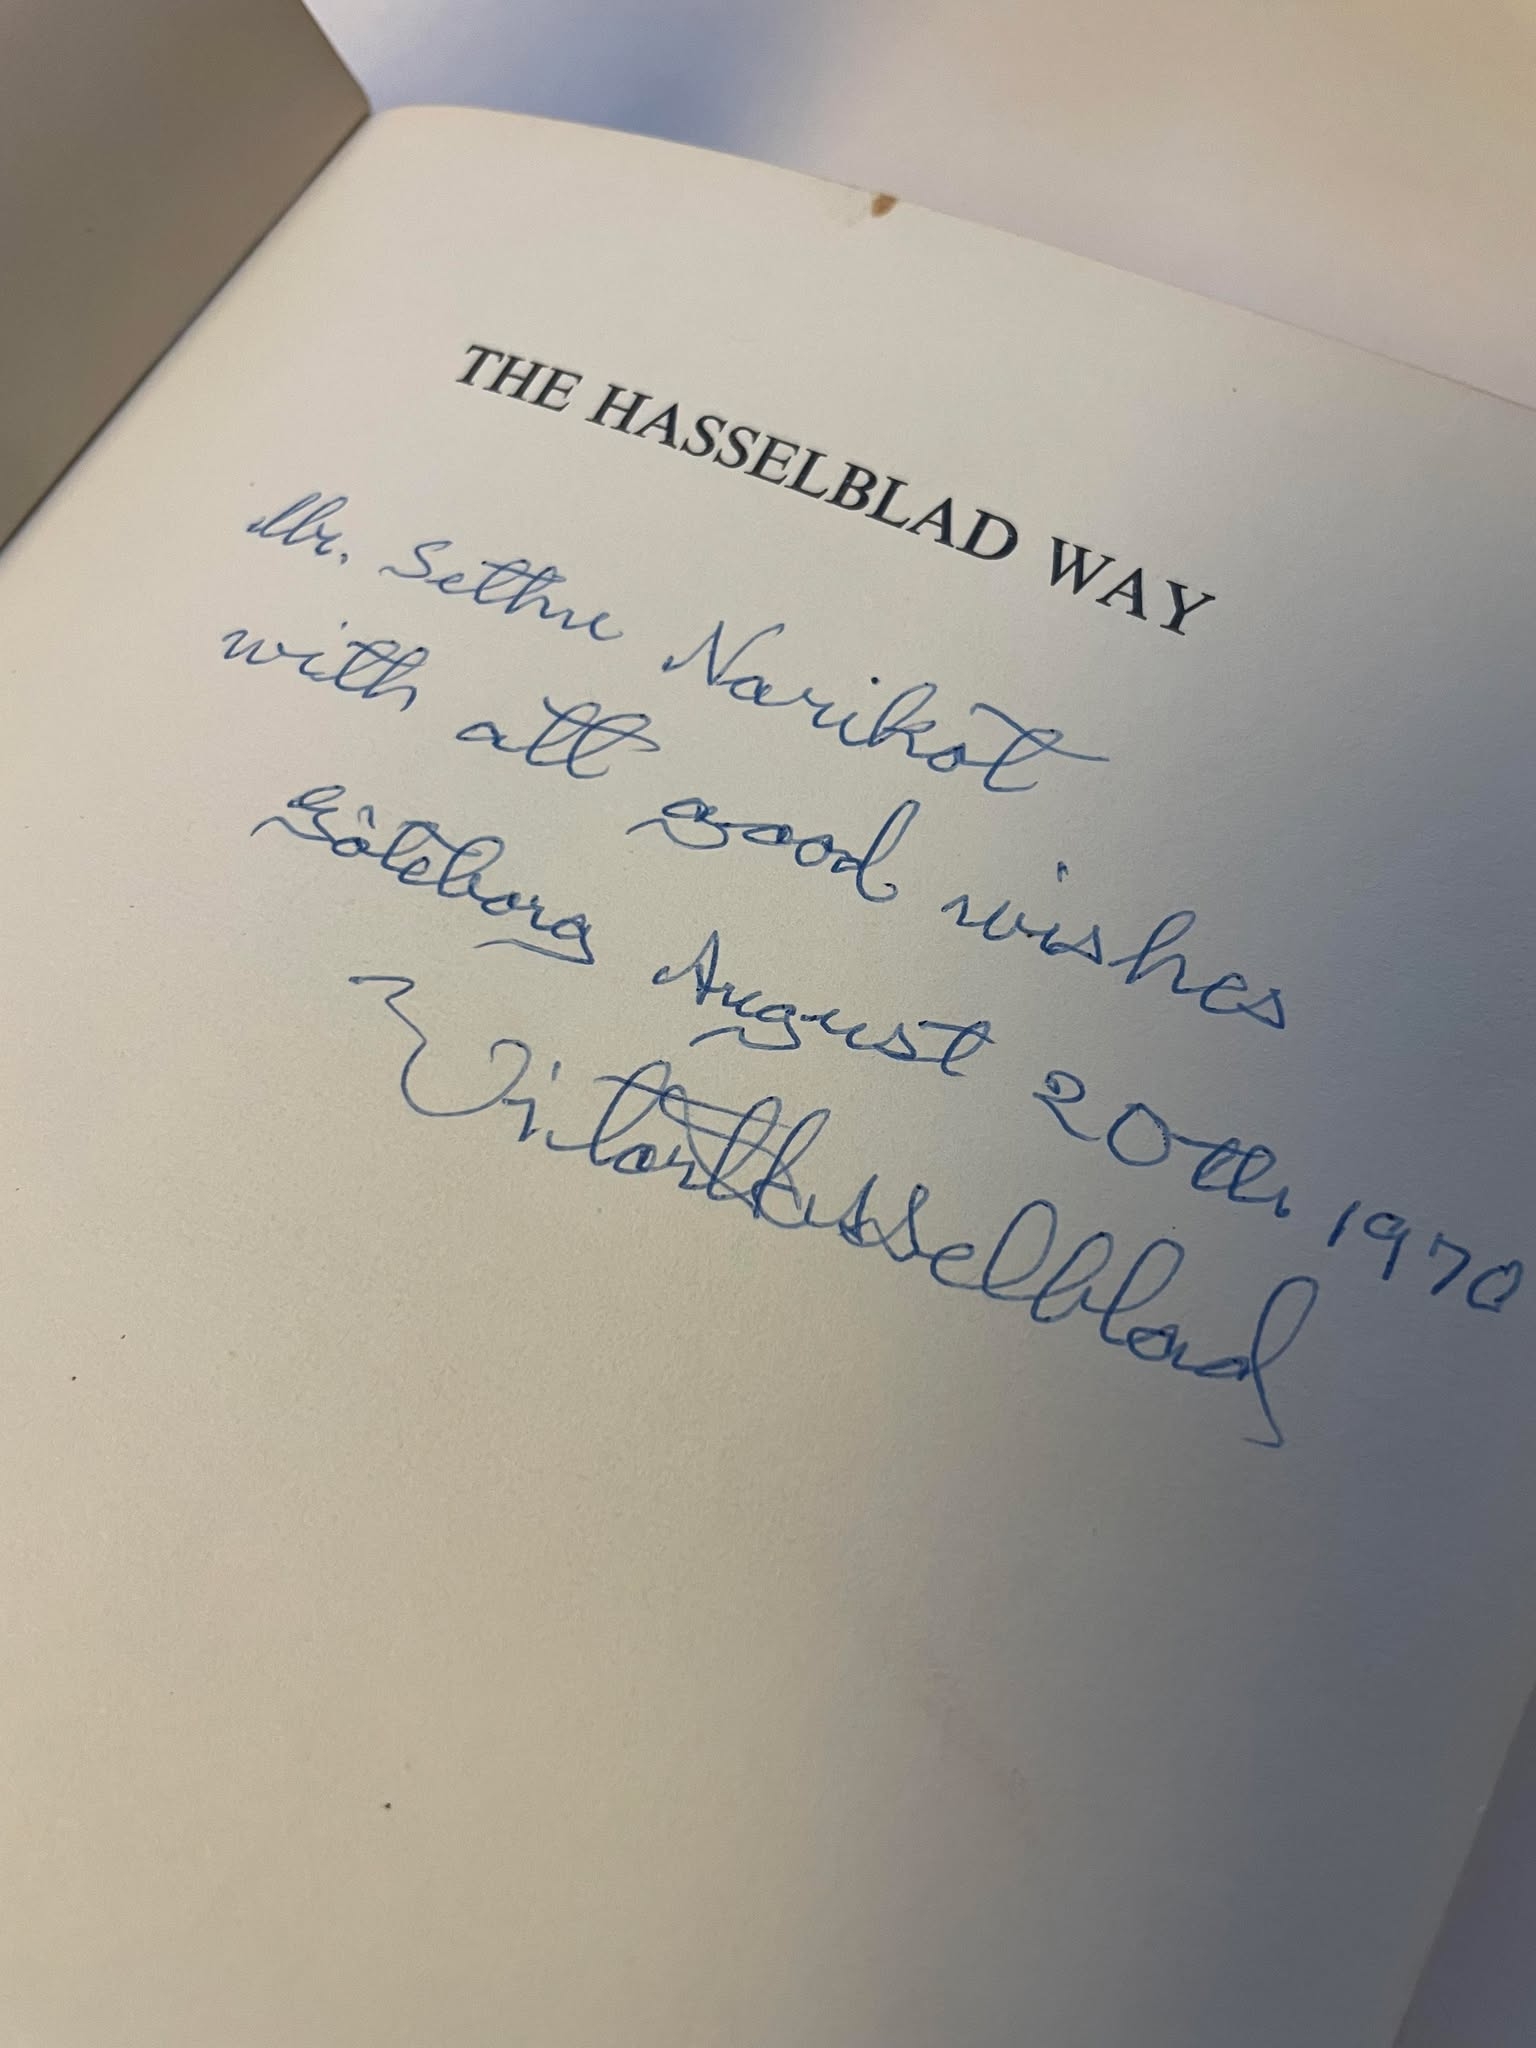 THE HASSELBLAD WAY
Mr. Sethu Narikot
with all good wishes
Göteborg August 20th. 1970
Victor Hasselblad